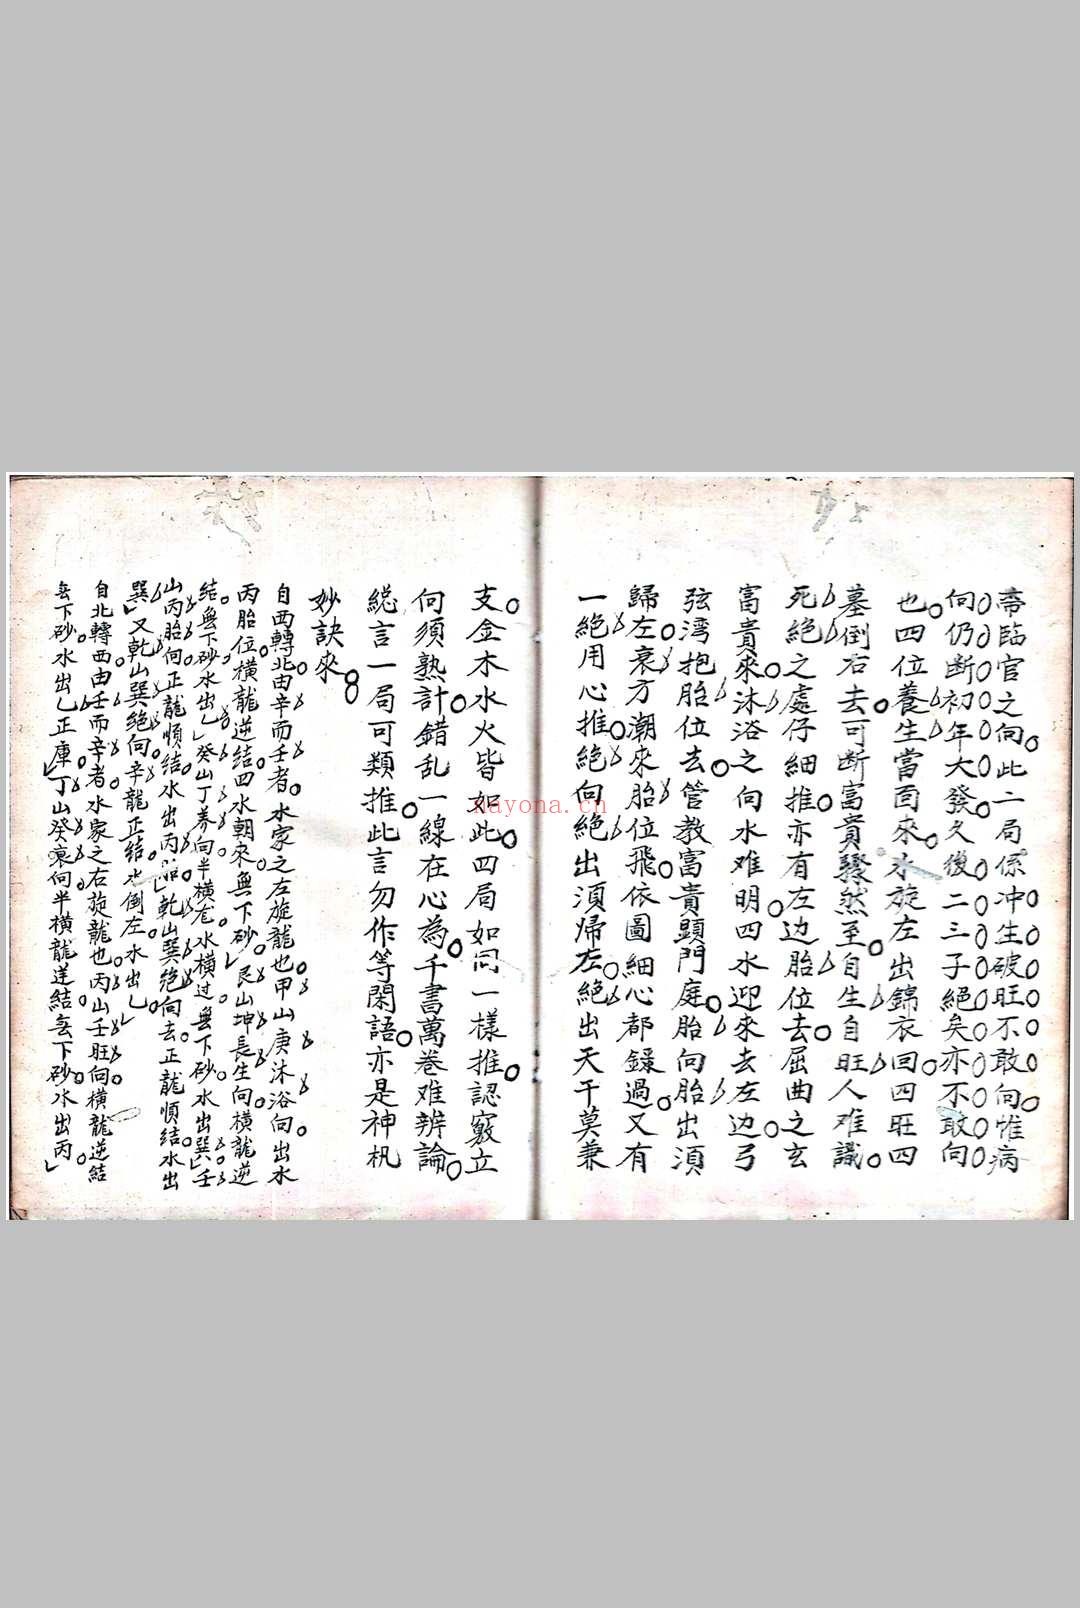 帶臨官之向此二局係冲生破旺不敢向惟病
向仍断初年大發久後二三子絕矣亦不敢向
也四位養生當面來水旋左出錦衣回四旺四
墓倒右去可断富貴驟然至自生自旺人难識
死絕之處仔細推亦有左边胎位去屈曲之玄
富貴來沐浴之向水难明四水迎來去左边弓
弦湾抱胎位去管教富貴顕門庭胎向胎出湏
歸左衰方潮來胎位飛依圖細心都録過又有
一絕用心推絕向絕出湏帰左絕出天干莫兼
支金木水火皆如此四局如同一樣推認竅立
向須熟計錯乱一線在心為千書萬卷难辨論
緫言一局可類推此言勿作等閑語亦是神机
妙訣來
自西轉北由辛而壬者水家之左旋龍也甲山庚沐浴向出水
丙胎位橫龍逆结四水朝來無下砂艮山坤長生向橫龍逆
结無下砂水出乚癸山丁养向半橫龙水橫过無下砂水出巽壬
山丙胎向正龍順结水出丙胎乾山巽絕向去正龍順结水出
巽又乾山巽绝向辛龍正结水倒左水出乚
自北轉西由壬而辛者水家之右旋龍也丙山壬旺向橫龍逆結
無下砂水出乚正庫丁山癸衰向半橫龍逆結無下砂水出丙
nayona.cn